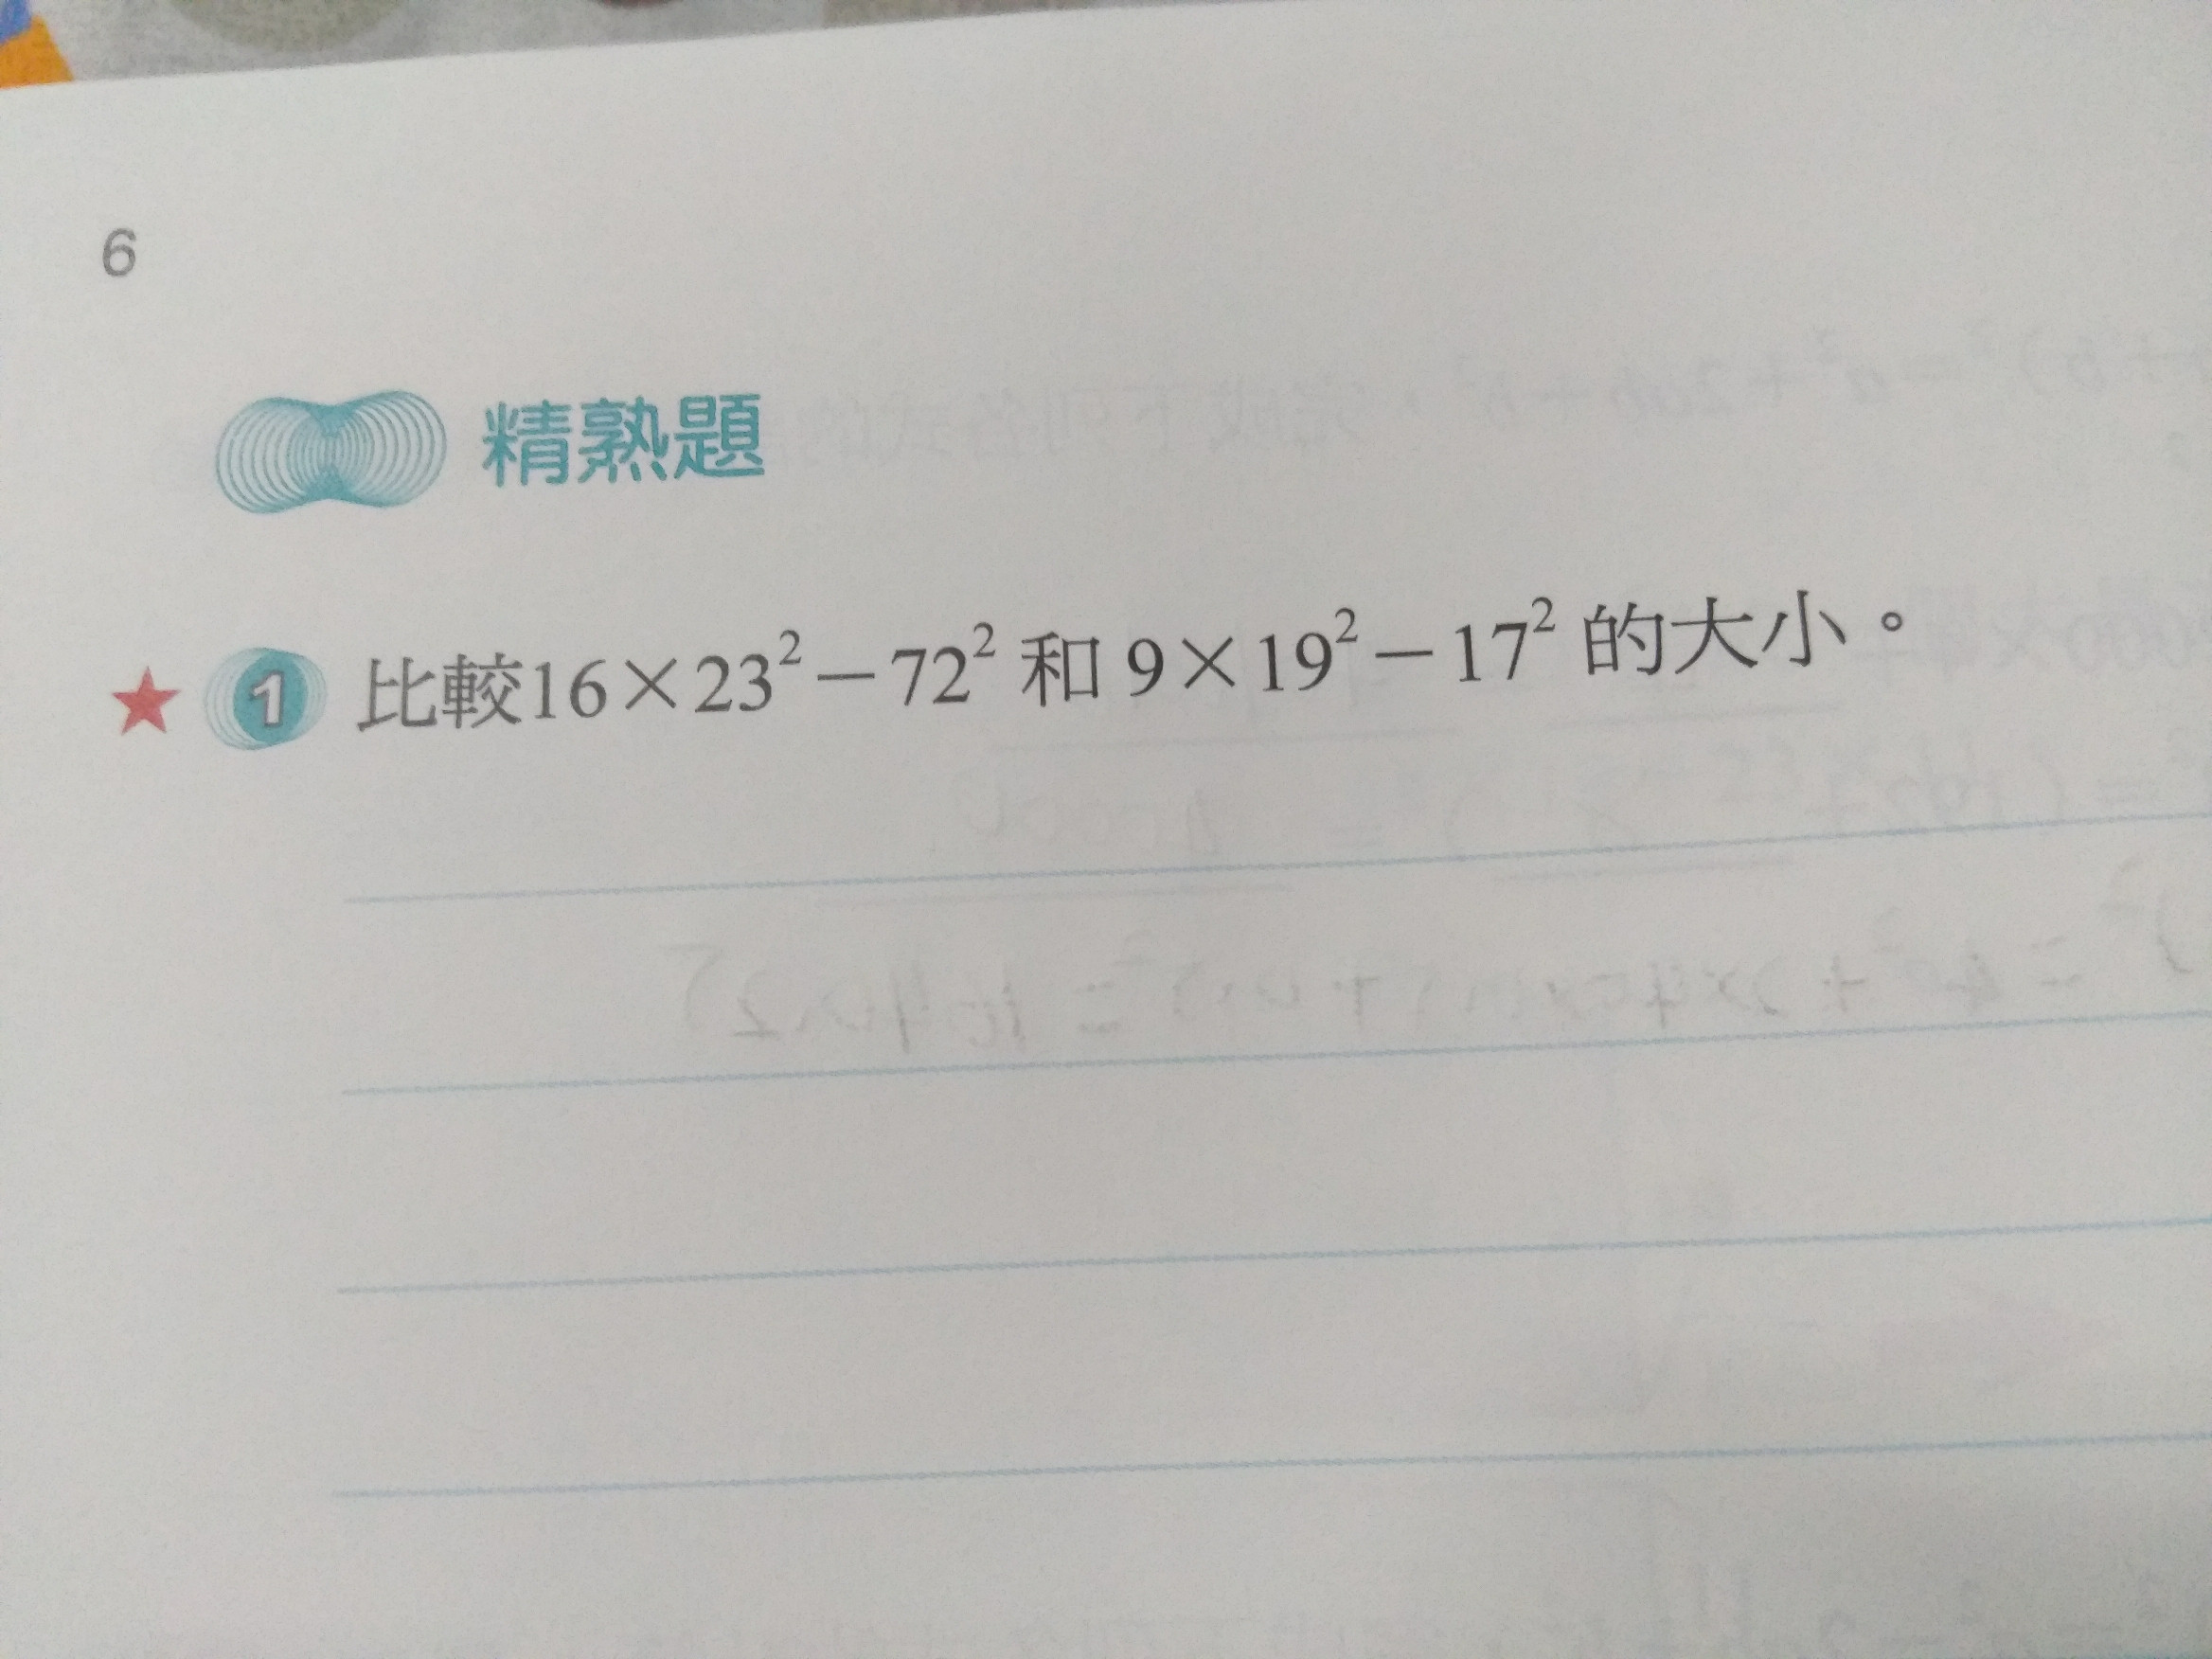 6
精熟題
★ 1 比較16×23²-72² 和 9×19²-17² 的大小。